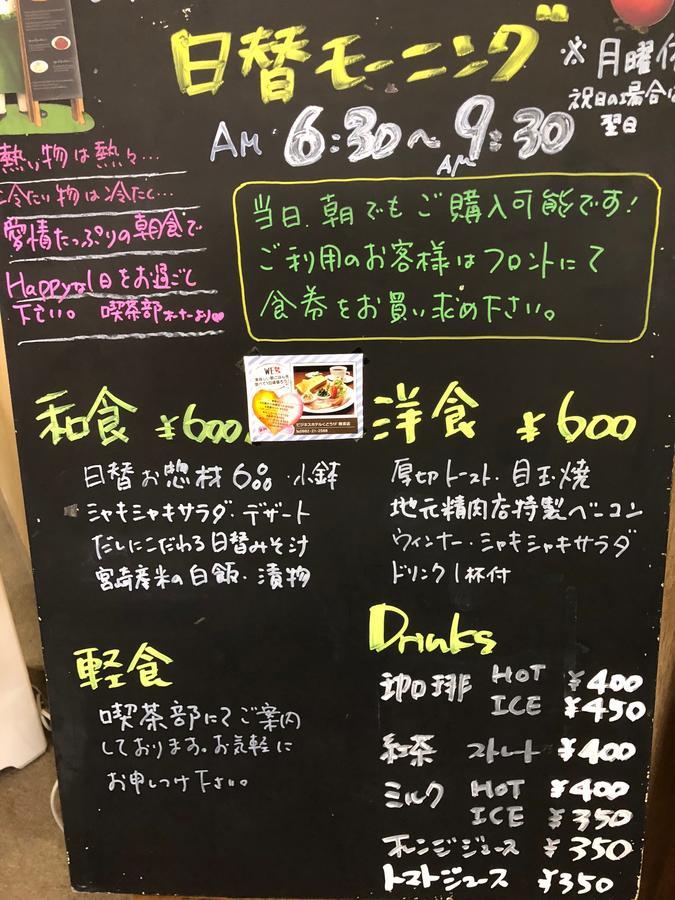 日替モーニング
※月曜
祝日の場合
翌日
AM 6:30〜AM 9:30
熱い物は熱々…
冷たい物は冷たく…
愛情たっぷりの朝食で
Happyな1日をお過ごし
下さい。 喫茶部オーナーより♥
当日朝でもご購入可能です!
ご利用のお客様はフロントにて
食券をお買い求め下さい。
和食 ¥600
日替お惣材 小鉢
シャキシャキサラダ・デザート
だしにこだわる日替みそ汁
宮崎産米の白飯・漬物
洋食 ¥600
厚切トースト・目玉焼
地元精肉店特製ベーコン
ウィンナー・シャキシャキサラダ
ドリンク1杯付
軽食
喫茶部にてご案内
しております。お気軽に
お申しつけ下さい。
Drinks
珈琲 HOT ¥400
ICE ¥450
紅茶 ストレート ¥400
ミルク HOT ¥400
ICE ¥350
オレンジジュース ¥350
トマトジュース ¥350